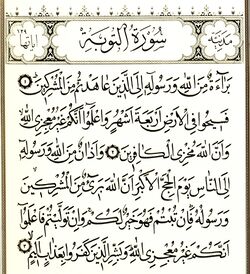 مدنية
سُورَةُ التَّوْبَةِ
آياتها ١٢٩
بَرَاءَةٌ مِنَ اللَّهِ وَرَسُولِهِ إِلَى الَّذِينَ عَاهَدْتُمْ مِنَ الْمُشْرِكِينَ ١
فَسِيحُوا فِي الْأَرْضِ أَرْبَعَةَ أَشْهُرٍ وَاعْلَمُوا أَنَّكُمْ غَيْرُ مُعْجِزِي اللَّهِ
وَأَنَّ اللَّهَ مُخْزِي الْكَافِرِينَ ٢ وَأَذَانٌ مِنَ اللَّهِ وَرَسُولِهِ
إِلَى النَّاسِ يَوْمَ الْحَجِّ الْأَكْبَرِ أَنَّ اللَّهَ بَرِيءٌ مِنَ الْمُشْرِكِينَ
وَرَسُولُهُ فَإِنْ تُبْتُمْ فَهُوَ خَيْرٌ لَكُمْ وَإِنْ تَوَلَّيْتُمْ فَاعْلَمُوا
أَنَّكُمْ غَيْرُ مُعْجِزِي اللَّهِ وَبَشِّرِ الَّذِينَ كَفَرُوا بِعَذَابٍ أَلِيمٍ ٣